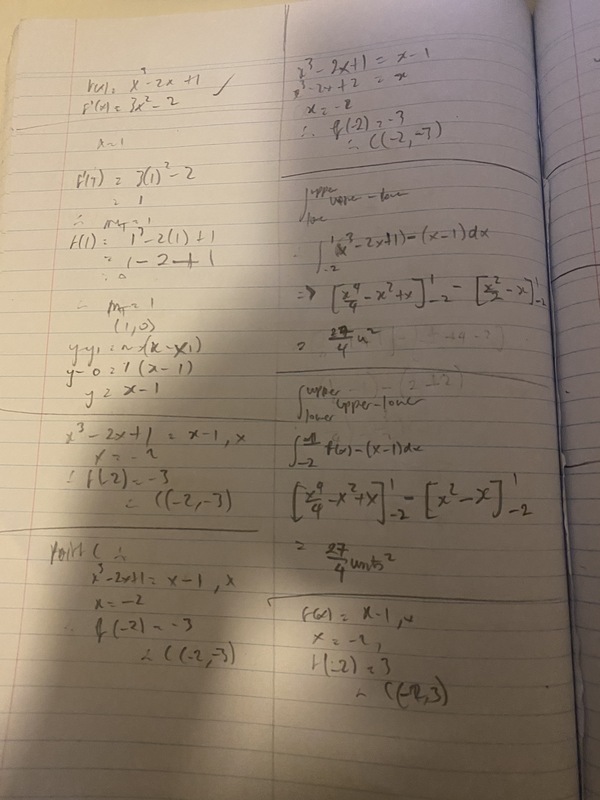 f(x) = x³ - 2x + 1 ✓
f'(x) = 3x² - 2
x = 1
f'(1) = 3(1)² - 2
= 1
∴ m_T = 1
f(1) = 1³ - 2(1) + 1
= 1 - 2 + 1
= 0
∴ m_T = 1
(1, 0)
y - y₁ = m(x - x₁)
y - 0 = 1(x - 1)
y = x - 1
x³ - 2x + 1 = x - 1, x
x = -2
∴ f(-2) = -3
∴ C(-2, -3)
Point C ∴
x³ - 2x + 1 = x - 1, x
x = -2
∴ f(-2) = -3
∴ C(-2, -3)
x³ - 2x + 1 = x - 1
x³ - 2x + 2 = x
x = -2
∴ f(-2) = -3
∴ C(-2, -3)
∫ upper lower upper - lower
∫₋₂¹ (x³ - 2x + 1) - (x - 1) dx
=> [x⁴/4 - x² + x]₋₂¹ - [x²/2 - x]₋₂¹
= 27/4 u²
∫ upper lower upper - lower
∫₋₂¹ f(x) - (x - 1) dx
[x⁴/4 - x² + x]₋₂¹ - [x² - x]₋₂¹
= 27/4 units²
f(x) = x - 1, x
x = -2,
f(-2) = 3
∴ C(-2, 3)